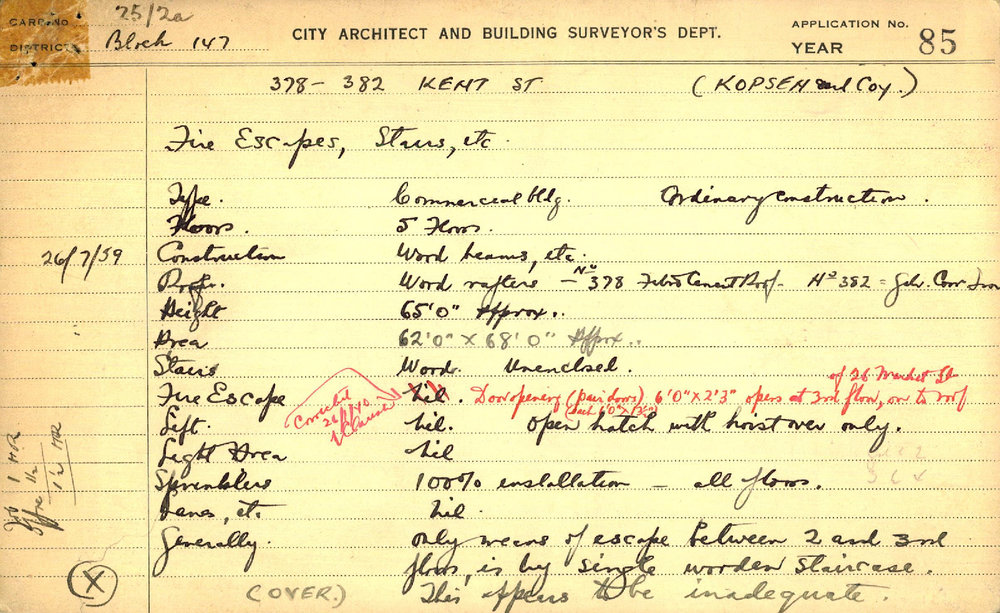 CARD No. 25/2a
DISTRICT Block 147
CITY ARCHITECT AND BUILDING SURVEYOR'S DEPT.
APPLICATION No.
YEAR 85
378-382 KENT ST (KOPSEN and Coy.)
Fire Escapes, Stairs, etc.
Type. Commercial bldg. Ordinary construction.
Floors. 5 Floors.
26/7/59 Construction Wood beams, etc.
Roof. Wood rafters - No 378 Fibro Cement Roof - No 382 = Galv. Corr. Iron
Height 65'0" Approx..
Area 62'0" x 68'0" Approx..
Stairs Wood. Unenclosed.
of 26 Market St
Fire Escape Nil. Door opening (pair doors) 6'0" x 2'3" opens at 3rd floor, on to roof
Lift. Nil. Open hatch with hoist over only.
Light Area Nil
Sprinklers 100% installation - all floors.
Lanes, etc. Nil.
Generally. Only means of escape between 2 and 3rd
floors, is by single wooden staircase.
(OVER.) This appears to be inadequate.
Job 1 HR
Office 1/2
1 1/2 HR
X